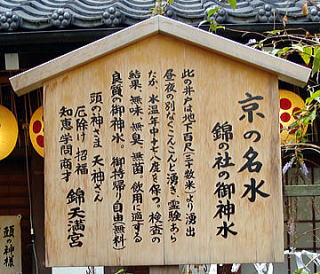 京の名水
錦の社の御神水
此の井戸は地下百尺(三十数米)より湧出
昼夜の別なくこんこんと湧き、霊験あら
たか、水温年中十七、八度を保つ。検査の
結果、無味、無臭、無菌、飲用に適する
良質の御神水。御持帰り自由(無料)
頭の神さま 天神さん
厄除け 招福
知恵 学問 商才
錦天満宮
頭の神様